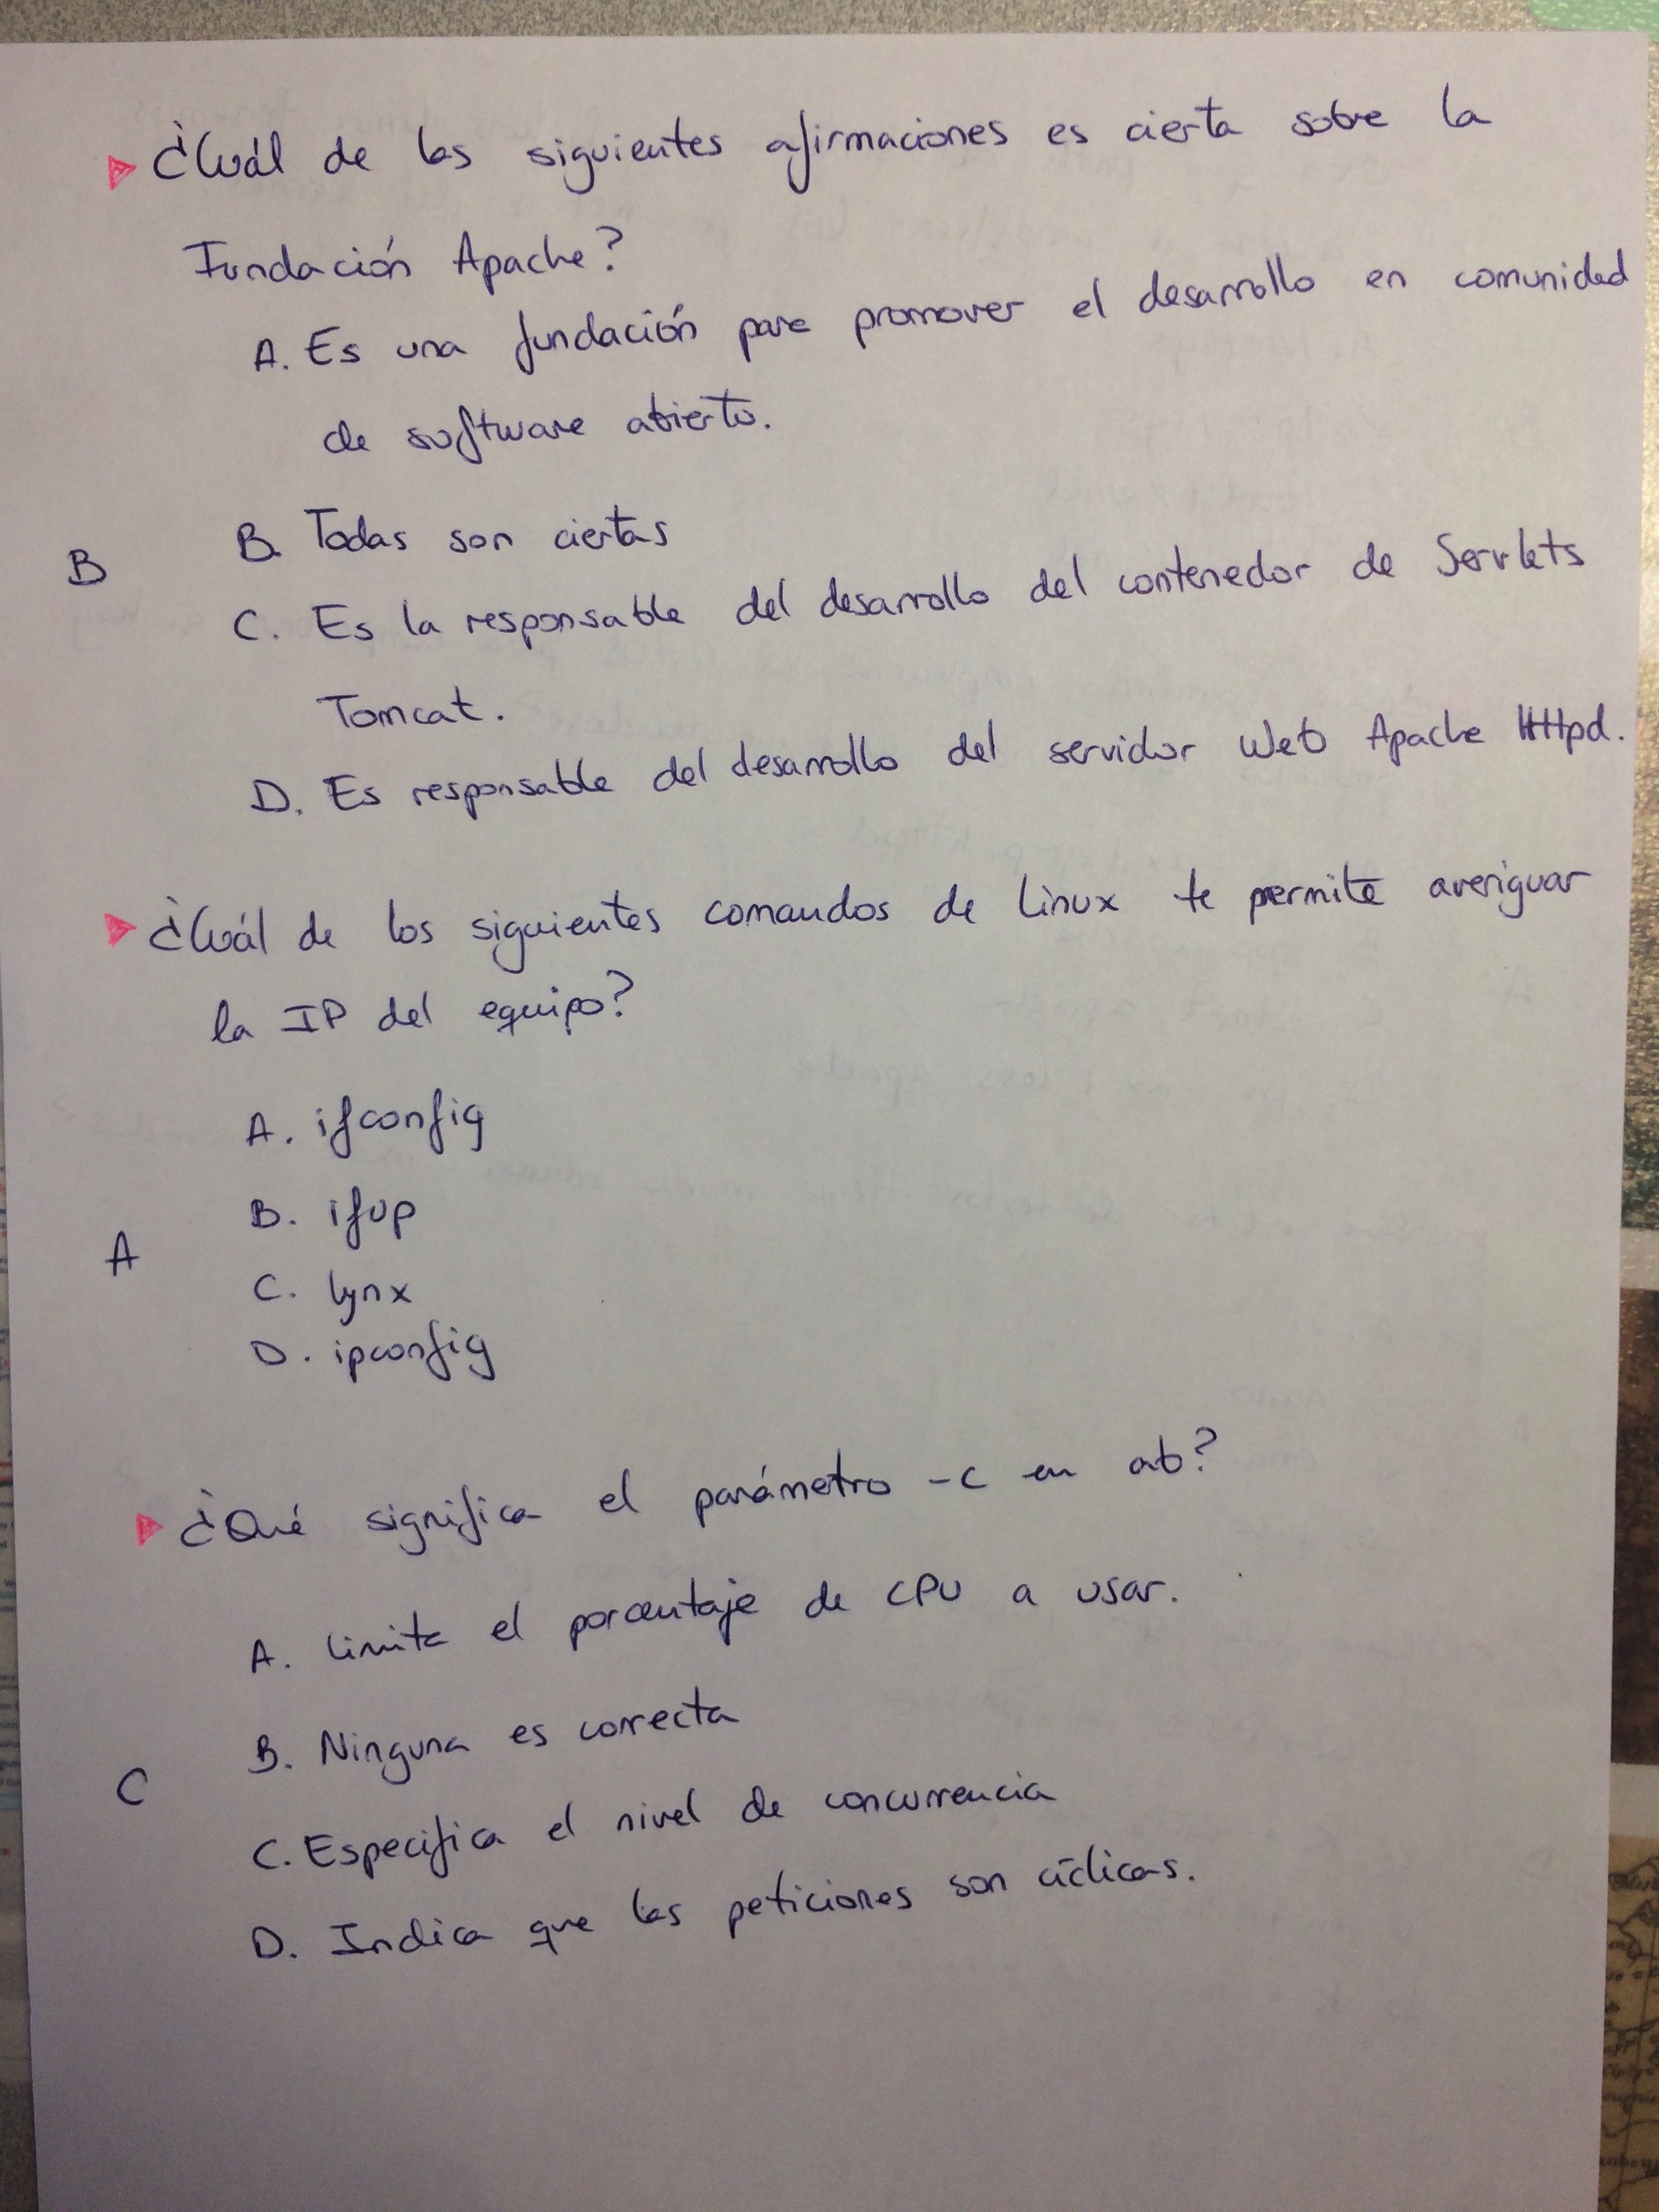 ¿Cuál de las siguientes afirmaciones es cierta sobre la
Fundación Apache?
A. Es una fundación para promover el desarrollo en comunidad
de software abierto.
B. Todas son ciertas
B
C. Es la responsable del desarrollo del contenedor de Servlets
Tomcat.
D. Es responsable del desarrollo del servidor Web Apache Httpd.
¿Cuál de los siguientes comandos de Linux te permite averiguar
la IP del equipo?
A. ifconfig
B. ifup
A
C. lynx
D. ipconfig
¿Qué significa el parámetro -c en ab?
A. Limita el porcentaje de CPU a usar.
B. Ninguna es correcta
C
C. Especifica el nivel de concurrencia
D. Indica que las peticiones son cíclicas.